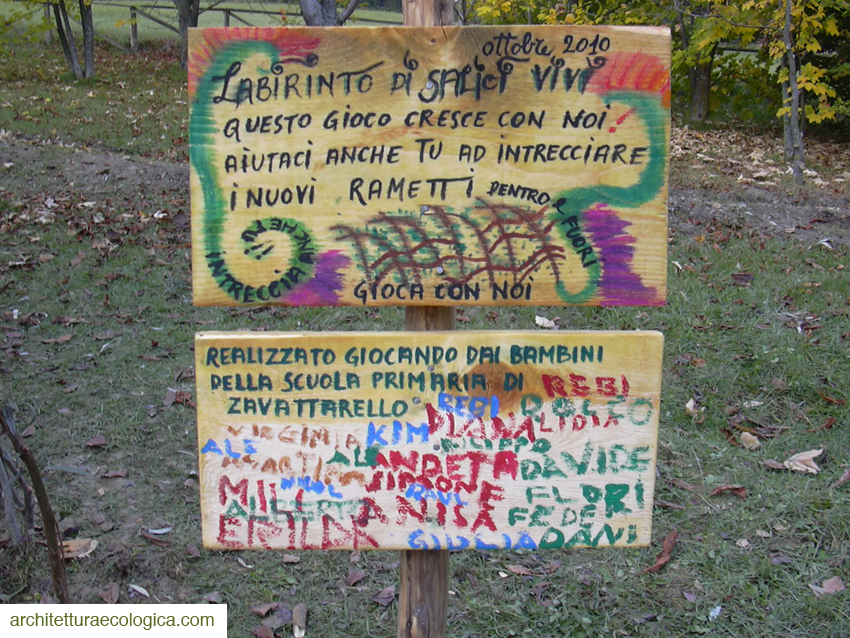 ottobre 2010
LABIRINTO DI SALICI VIVI
QUESTO GIOCO CRESCE CON NOI!
AIUTACI ANCHE TU AD INTRECCIARE
I NUOVI RAMETTI DENTRO E FUORI
INTRECCIA ANCHE TU
GIOCA CON NOI
REALIZZATO GIOCANDO DAI BAMBINI
DELLA SCUOLA PRIMARIA DI REBI
ZAVATTARELLO BEBI
VIRGINIA KIM DIANA LIDIA
ALE FILIPPO
ALE ANDETA DAVIDE
MILL NICOL SIMONE FLORI
ALBERTO RAUL
ANISA FEDE
GIULIA DANI
architetturaecologica.com